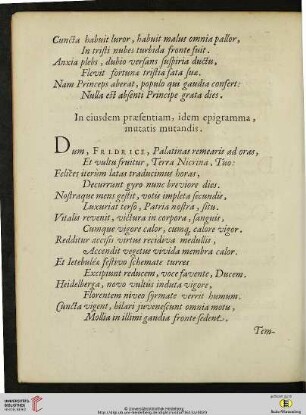 Cuncta habuit luror, habuit malus omnia pallor,
In tristi nubes turbida fronte fuit.
Anxia plebs, dubio versans suspiria ductu,
Flevit fortunæ tristia fata suæ.
Nam Princeps aberat, populo qui gaudia confert:
Nulla est absenti Principe grata dies.
In eiusdem præsentiam, idem epigramma,
mutatis mutandis.
Dum, FRIDRICE, Palatinas remearis ad oras,
Et vultu fruitur, Terra Nicrina, Tuo:
Felices iterum lætas traducimus horas,
Decurrunt gyro nunc breviore dies.
Nostraque mens gestit, votis impleta secundis,
Luxuriat terso, Patria nostra, situ.
Vitalis revenit, victura in corpora, sanguis,
Cumque vigore calor, cumq, calore viger.
Redditur accisis virtus recidiva medullis,
Accendit vegetus vivida membra calor.
Et letebulæ festivo schemate turres
Excipiunt reducem, voce favente, Ducem.
Heidelberga, novo vultus induta vigore,
Florentem niveo syrmate verrit humum.
Cuncta vigent, hilari juvenescunt omnia motu,
Mollia in illimi gaudia fronte sedent.
Tem-
UNIVERSITÄTS-
BIBLIOTHEK
HEIDELBERG
© Universitätsbibliothek Heidelberg